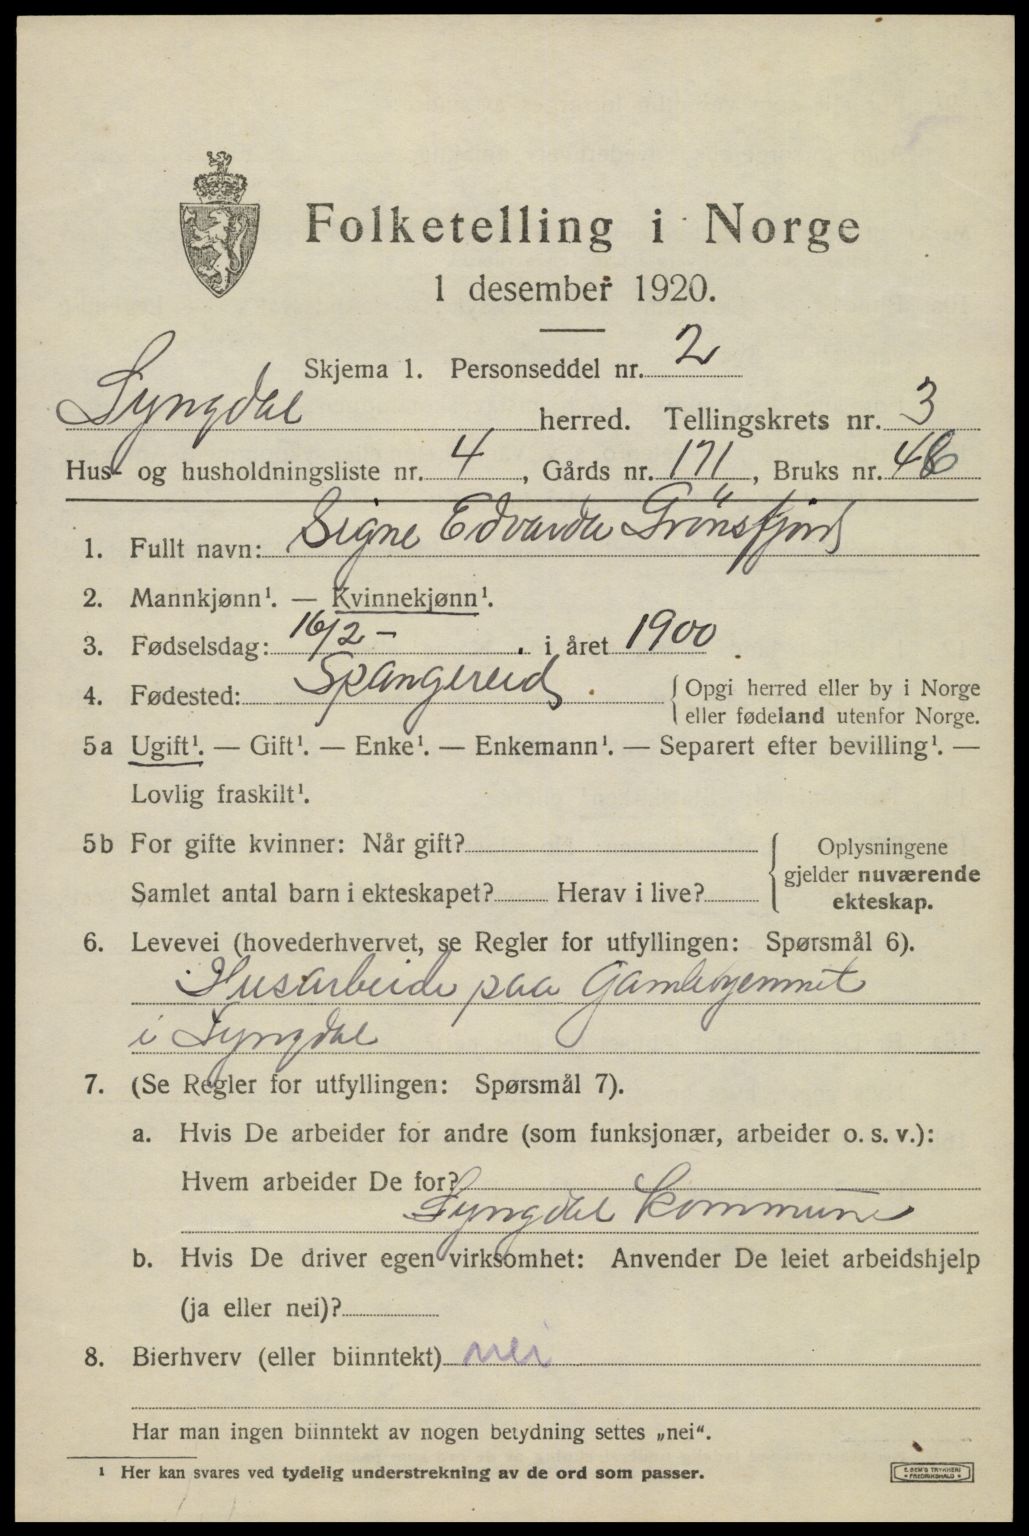 Folketelling i Norge
1 desember 1920.
Skjema 1. Personseddel nr. 2
Lyngdal herred. Tellingskrets nr. 3
Hus- og husholdningsliste nr. 4, Gårds nr. 171, Bruks nr. 46
1. Fullt navn: Signe Edvarda Grönsfjord
2. Mannkjønn¹. — Kvinnekjønn¹.
3. Fødselsdag: 16/2 – i året 1900.
4. Fødested: Spangereid. {Opgi herred eller by i Norge
eller fødeland utenfor Norge.
5a Ugift¹. — Gift¹. — Enke¹. — Enkemann¹. — Separert efter bevilling¹. —
Lovlig fraskilt¹.
5b For gifte kvinner: Når gift? Oplysningene
gjelder nuværende
Samlet antal barn i ekteskapet? Herav i live? ekteskap.
6. Levevei (hovederhvervet, se Regler for utfyllingen: Spørsmål 6).
Husarbeide paa Gamlehjemmet
i Lyngdal
7. (Se Regler for utfyllingen: Spørsmål 7).
a. Hvis De arbeider for andre (som funksjonær, arbeider o. s. v.):
Hvem arbeider De for?
Lyngdal kommune
b. Hvis De driver egen virksomhet: Anvender De leiet arbeidshjelp
(ja eller nei)?
8. Bierhverv (eller biinntekt) nei
Har man ingen biinntekt av nogen betydning settes „nei“.
¹ Her kan svares ved tydelig understrekning av de ord som passer.
E. SEM'S TRYKKERI
FREDRIKSHALD